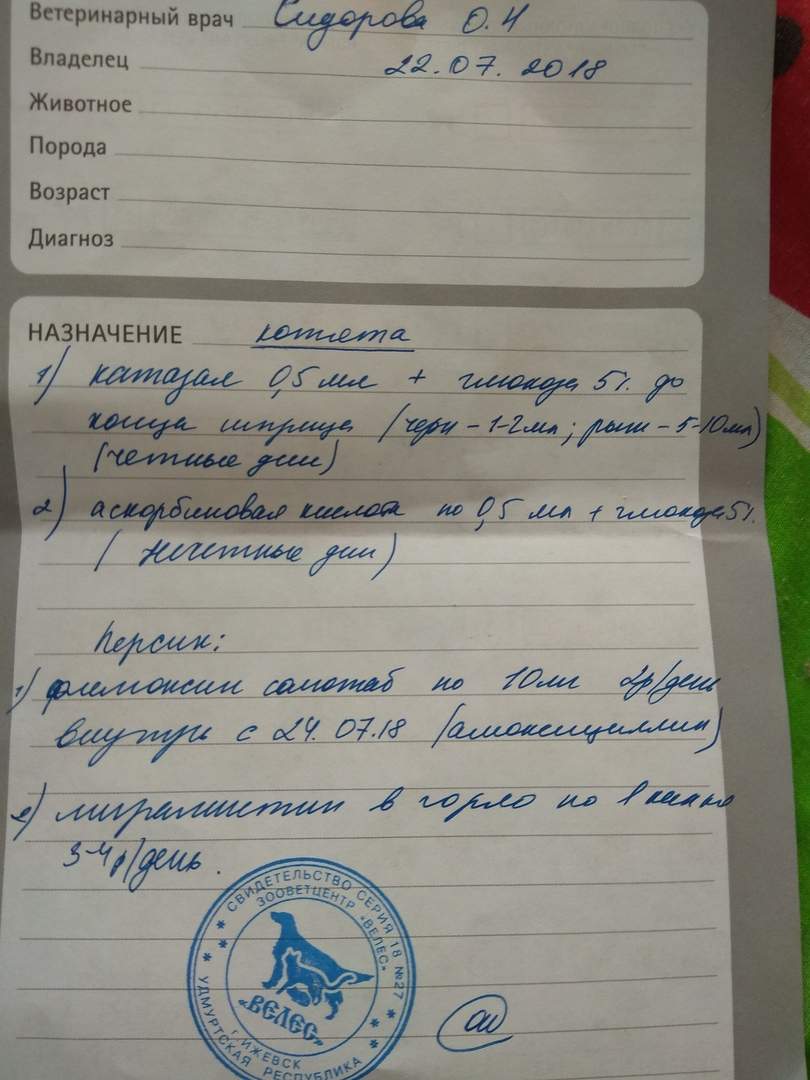 Ветеринарный врач Сидорова О.Н
Владелец 22.07.2018
Животное
Порода
Возраст
Диагноз
НАЗНАЧЕНИЕ котята
1) катозал 0,5 мл + глюкоза 5% до
конца шприца (черн - 1-2мл; рыж - 5-10мл)
(четные дни)
2) аскорбиновая кислота по 0,5 мл + глюкоза 5%.
(нечетные дни)
Персик:
1) флемоксин солютаб по 10мг 2р/день
внутрь с 24.07.18 (амоксициллин)
2) мирамистин в горло по 1 капле
3-4 р/день.
СВИДЕТЕЛЬСТВО СЕРИЯ 18 №27
ЗООВЕТЦЕНТР «ВЕЛЕС»
«ВЕЛЕС»
г. ИЖЕВСК
УДМУРТСКАЯ РЕСПУБЛИКА